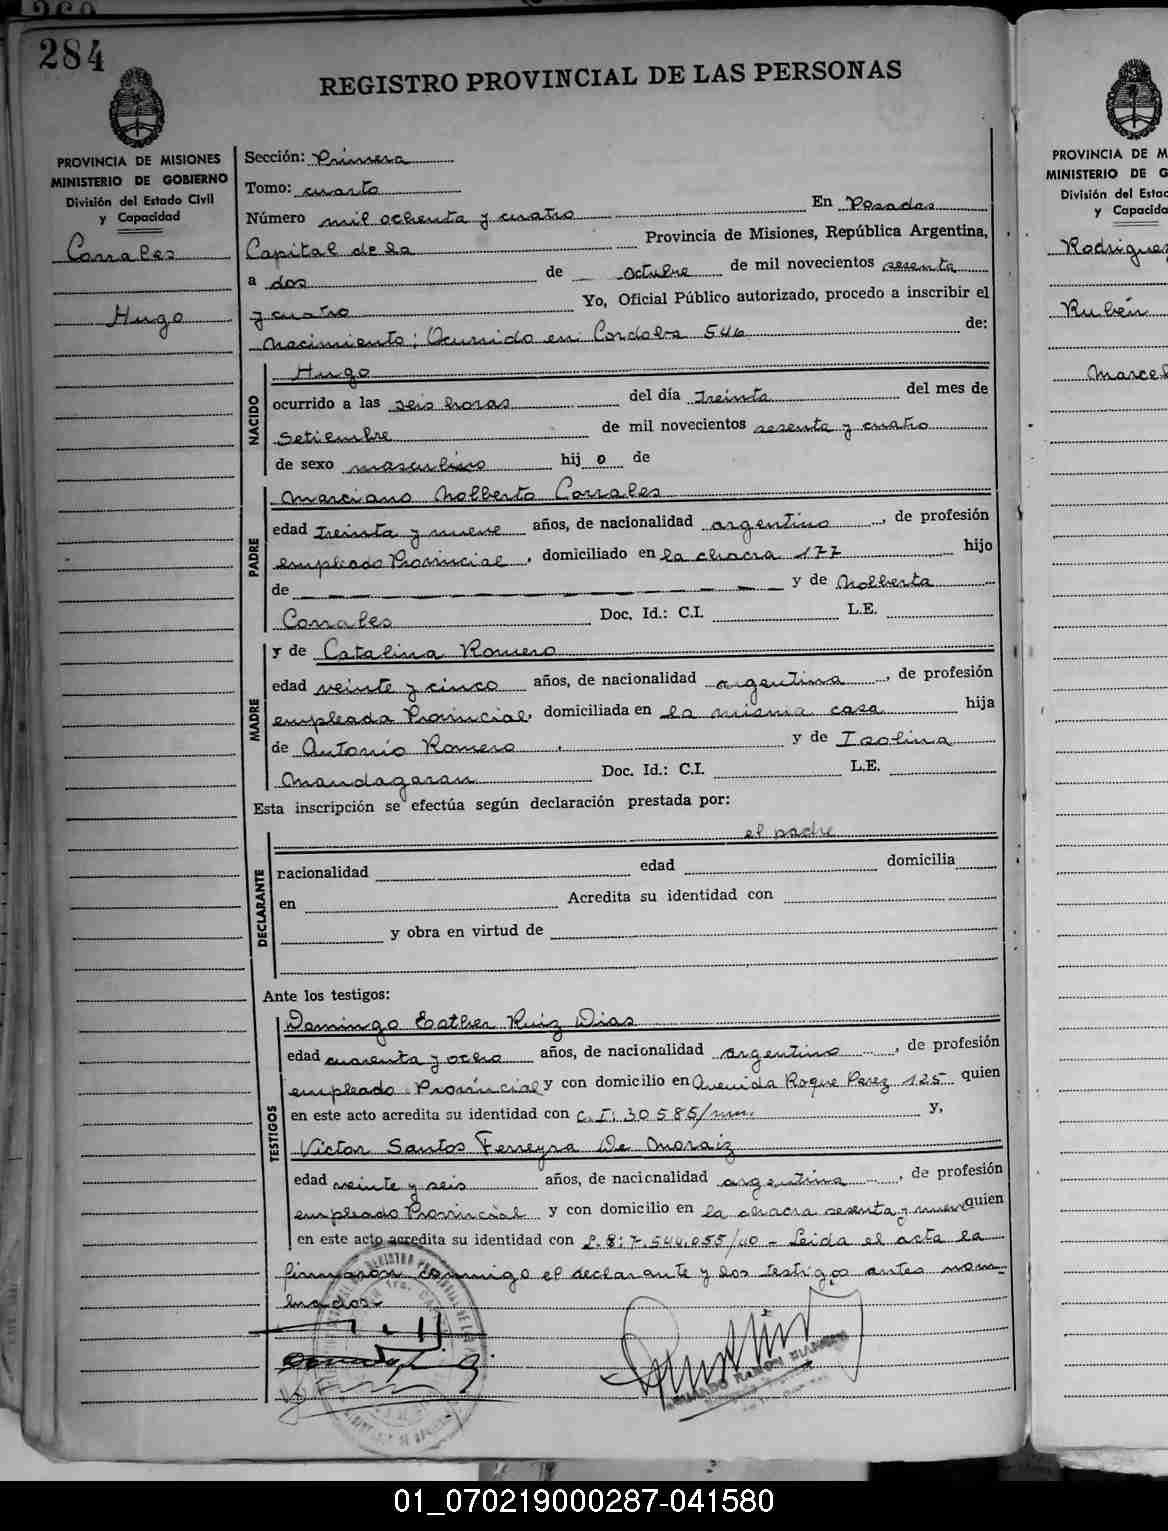 284
REGISTRO PROVINCIAL DE LAS PERSONAS
PROVINCIA DE MISIONES
MINISTERIO DE GOBIERNO
División del Estado Civil
y Capacidad
Corrales
Hugo
Sección: Primera
Tomo: cuarto
Número mil ochenta y cuatro En Posadas
Capital de la Provincia de Misiones, República Argentina,
a dos de octubre de mil novecientos sesenta
y cuatro Yo, Oficial Público autorizado, procedo a inscribir el
nacimiento; Ocurrido en Cordoba 546 de:
NACIDO
Hugo
ocurrido a las seis horas del día treinta del mes de
setiembre de mil novecientos sesenta y cuatro
de sexo masculino hij o de
PADRE
Marciano Nolberto Corrales
edad treinta y nueve años, de nacionalidad argentino, de profesión
empleado Provincial, domiciliado en la chacra 177 hijo
de y de Nolberta
Corrales Doc. Id.: C.I. L.E.
MADRE
y de Catalina Romero
edad veinte y cinco años, de nacionalidad argentina, de profesión
empleada Provincial, domiciliada en la misma casa hija
de Antonio Romero y de Isolina
Mandagaran Doc. Id.: C.I. L.E.
Esta inscripción se efectúa según declaración prestada por:
DECLARANTE
el padre
racionalidad edad domicilia
en Acredita su identidad con
y obra en virtud de
Ante los testigos:
TESTIGOS
Domingo Esther Ruiz Dias
edad cuarenta y ocho años, de nacionalidad argentino, de profesión
empleado Provincial y con domicilio en Avenida Roque Perez 125 quien
en este acto acredita su identidad con C.I: 30585/mns. y,
Victor Santos Ferreyra De Moraiz
edad veinte y seis años, de nacicnalidad argentina, de profesión
empleado Provincial y con domicilio en la chacra sesenta y nueve quien
en este acto acredita su identidad con 7.544.055/40 - Leida el acta la
firmaron conmigo el declarante y los testigos antes nom-
brados.
PROVINCIA DE M
MINISTERIO DE G
División del Estad
y Capacida
Rodriguez
Rubén
Marcel
01_070219000287-041580